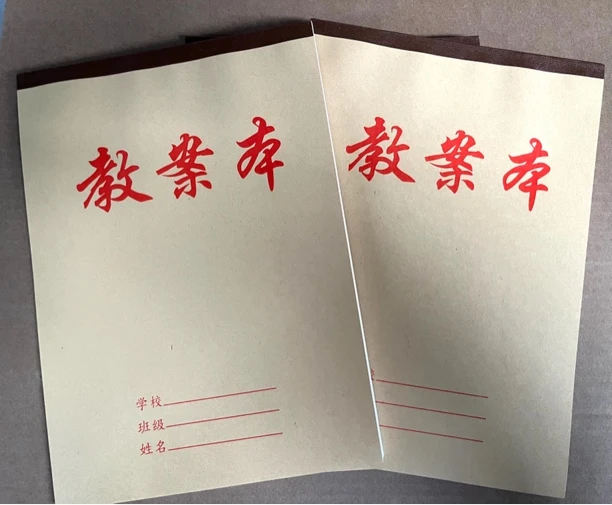 教案本
学校
班级
姓名
教案本